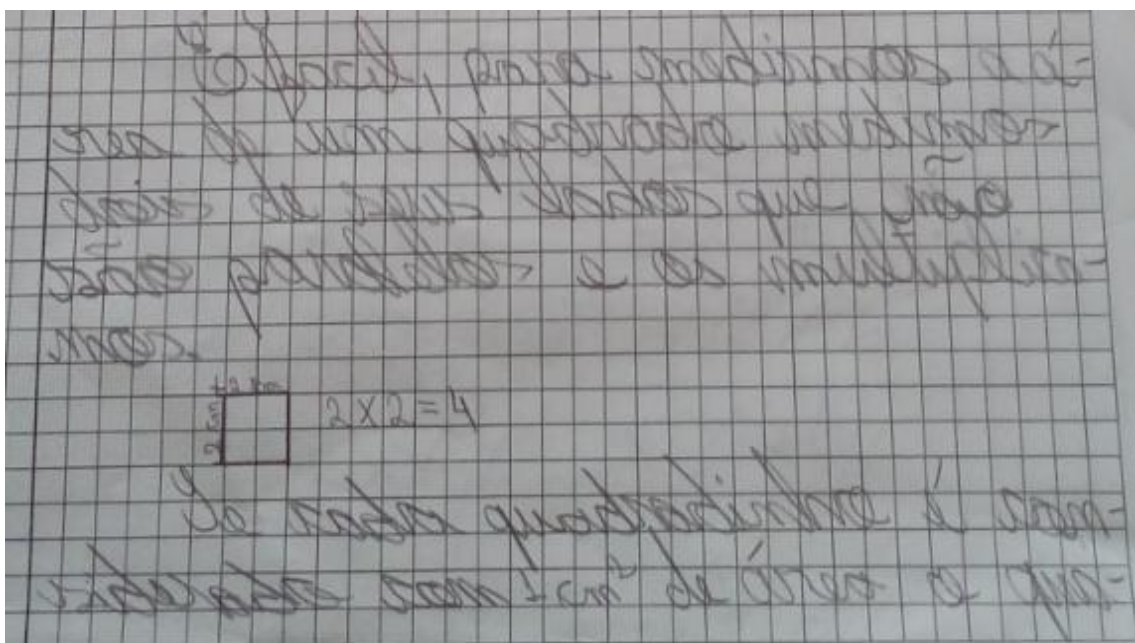 É fácil, para medirmos a á-
rea de um quadrado medimos
dois de seus lados que não
são paralelos e os multiplica-
mos.
2 cm
2 cm 2 x 2 = 4
Se cada quadradinho é con-
siderado com 1 cm² de área o qua-